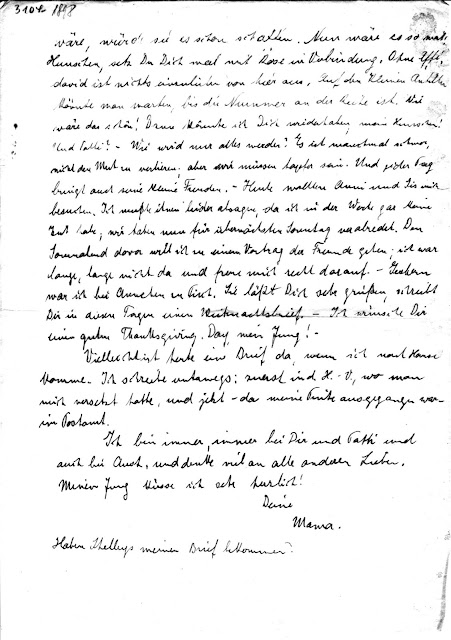 wäre, würde sie es schon schaffen. Nun wäre es so mein
Hänschen, setz Du Dich mal mit Rose in Verbindung. Ohne Affi-
davit ist nichts einzuleiten von hier aus. Auf den kleinen Antillen
könnte man warten, bis die Nummer an der Reihe ist. Wie
wäre das schön! Dann könnte ich Dich wiederhaben, mein
Und Vatti? - Wie wird nur alles werden? Es ist manchmal schwer,
nicht den Mut zu verlieren, aber wir müssen tapfer sein. Und jeder Tag
bringt auch seine kleine Freuden. - Heute wollten Anni und mich
besuchen. Ich mußte ihnen leider absagen, da ich in der Woche gar keine
Zeit habe; wir haben nun für übernächsten Sonntag verabredet. Den
Sonnabend davor will ich zu einem Vortrag der Freunde gehen; ich war
lange, lange nicht da und freue mich recht darauf. - Gestern
war ich bei Annchen zu Tisch. Sie läßt Dich sehr grüßen, schreibt
Dir in diesen Tagen einen Weihnachtsbrief. - Ich wünsche Dir
einen guten Thanksgiving-Day, mein Jung! -
Vielleicht ist heute ein Brief da, wenn ich nach Hause
komme. Ich schreibe unterwegs: zuerst in d. H.-V., wo man
mich versetzt hatte, und jetzt - da meine Tinte ausgegangen war -
im Postamt.
Ich bin immer, immer bei Dir und Vatti und
auch bei Euch, und denke viel an alle anderen Lieben.
Meinen Jung küsse ich sehr herzlich!
Deine
Mama.
Haben Shelleys meinen Brief bekommen?